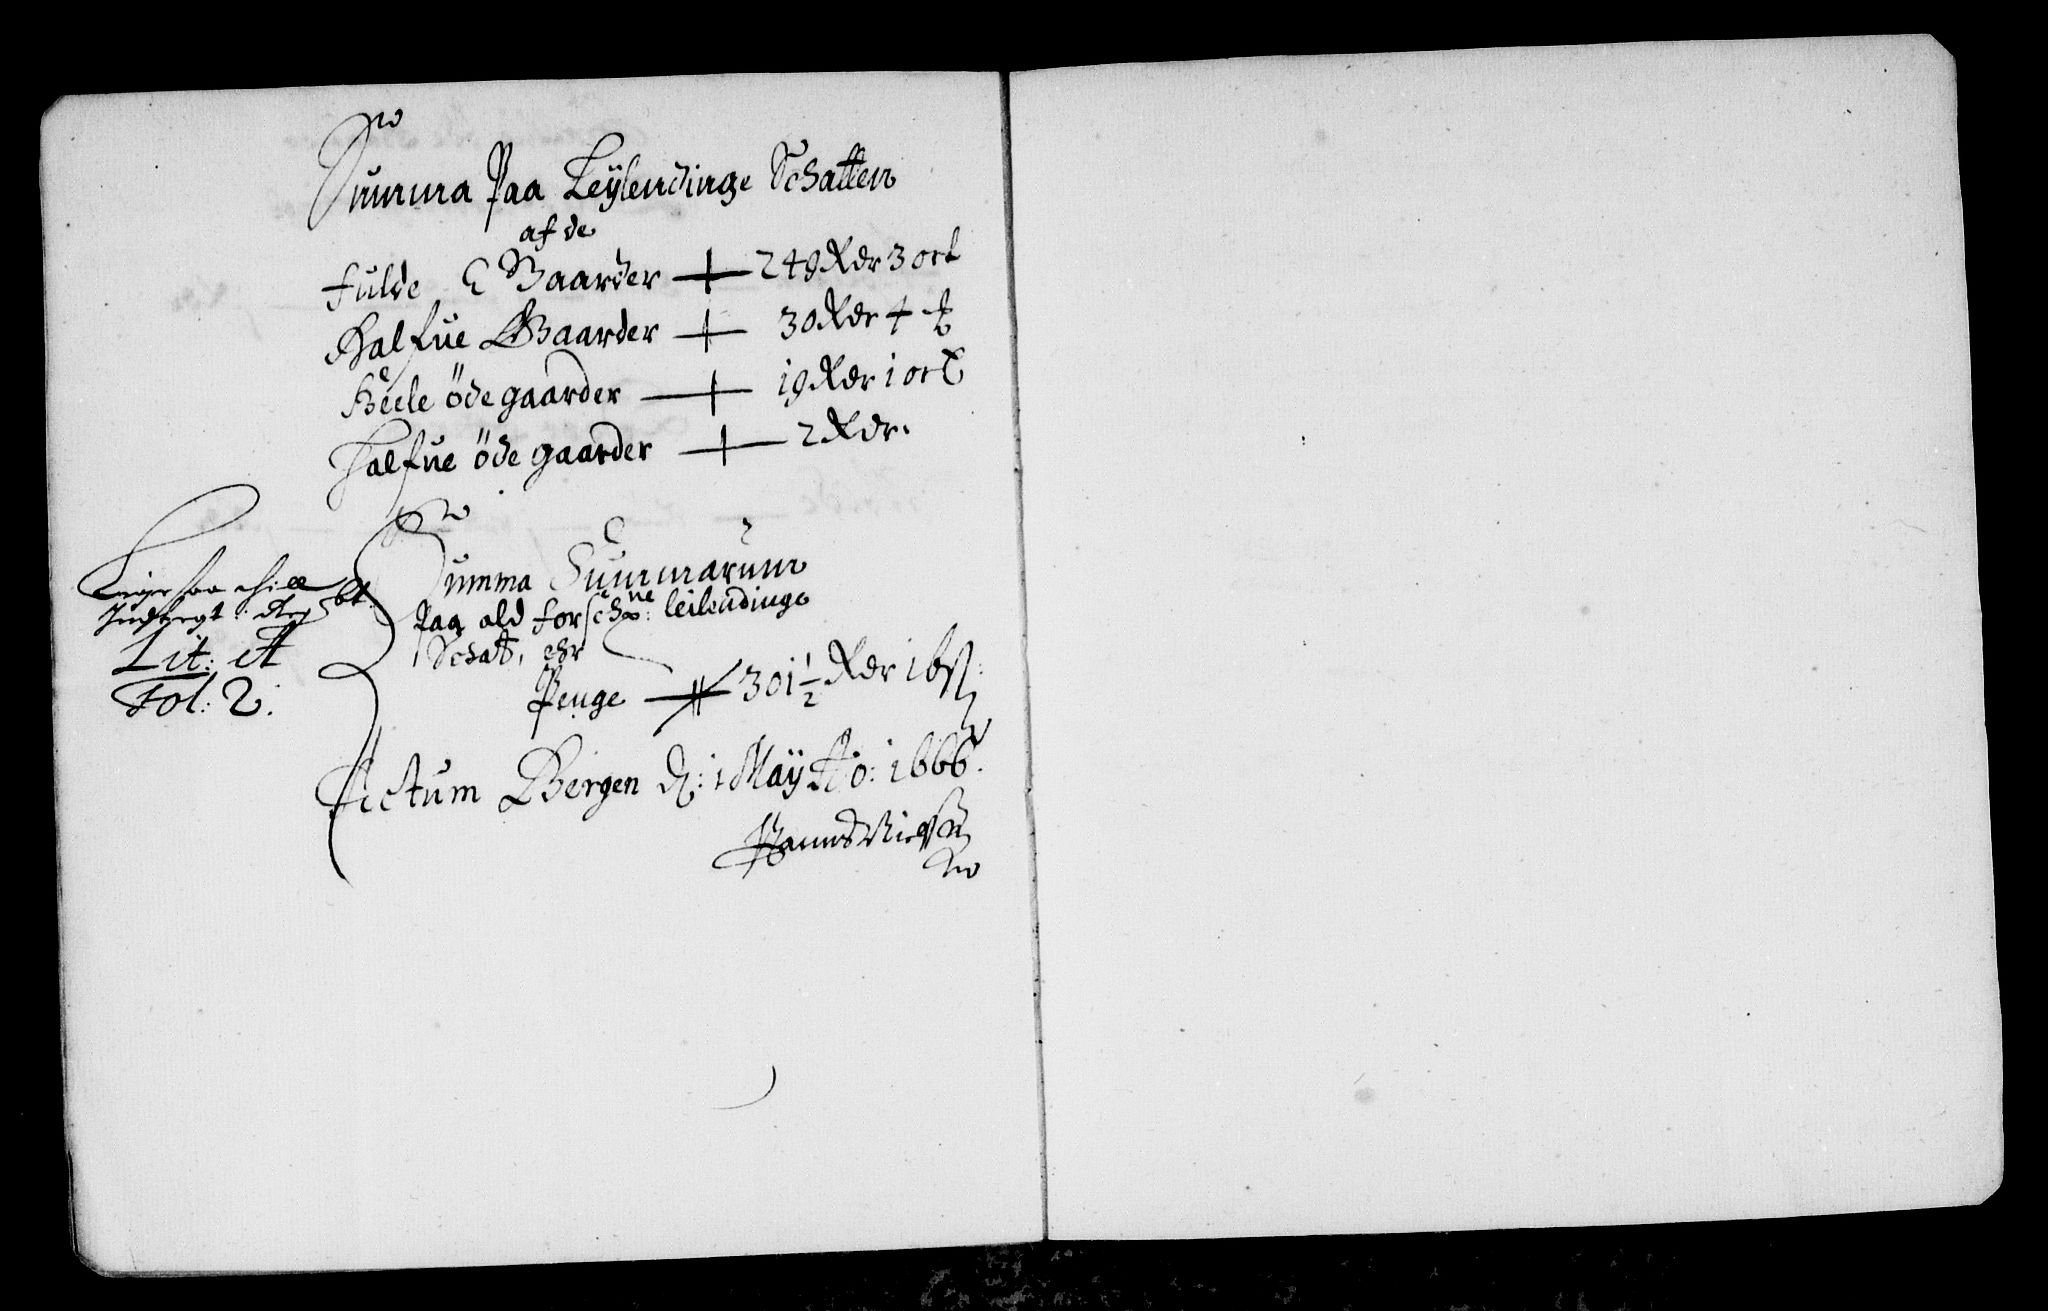 Summa Paa Leÿlendinge Schatten
af de
fulde Gaarder 249 Rdr 3 ort
Halfue Gaarder 30 Rdr 4 ß
Heele öde gaarder 19 Rdr 1 ort
Halfue öde gaarder 2 Rdr.
Summa Summarum
Paa ald forschne: leilendinge
Schatt, ehr
Penge 301½ Rdr 16 ß:
Lit: A
Fol: 2.
Actum Bergen d: 1 Maÿ Ao: 1666.